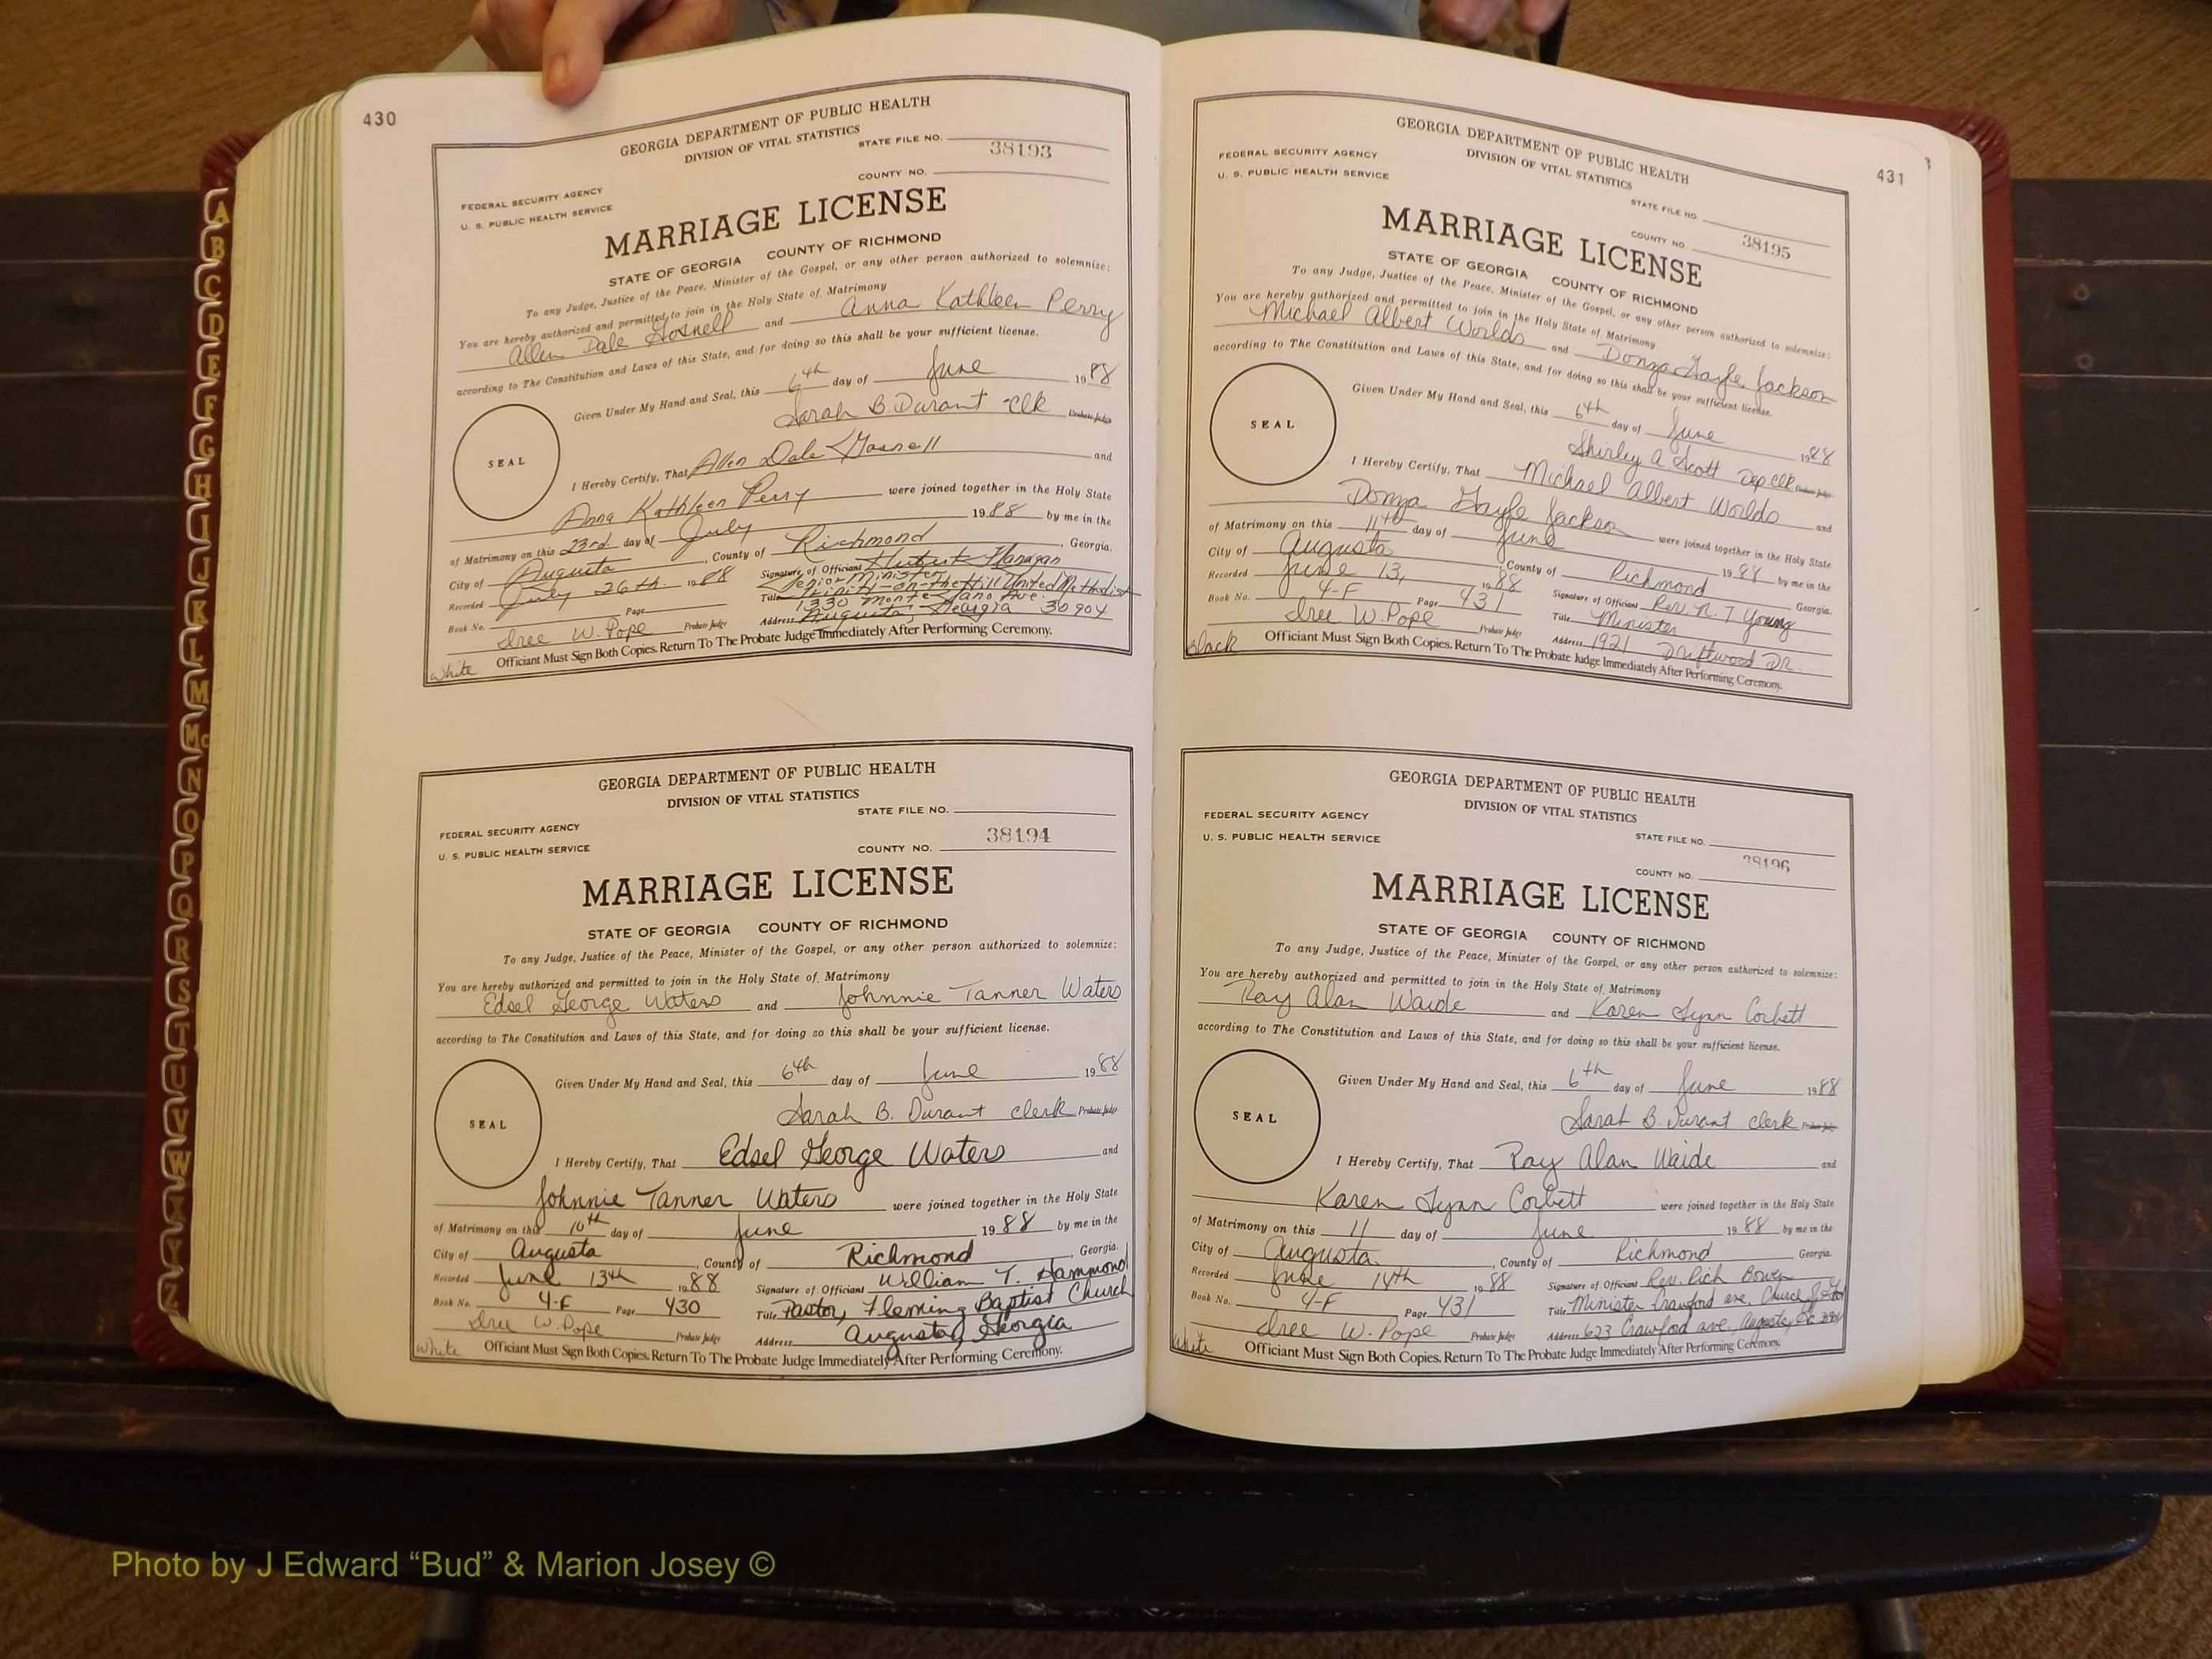 430
GEORGIA DEPARTMENT OF PUBLIC HEALTH
DIVISION OF VITAL STATISTICS
STATE FILE NO.
38193
FEDERAL SECURITY AGENCY
COUNTY NO.
U. S. PUBLIC HEALTH SERVICE
MARRIAGE LICENSE
STATE OF GEORGIA COUNTY OF RICHMOND
To any Judge, Justice of the Peace, Minister of the Gospel, or any other person authorized to solemnize:
You are hereby authorized and permitted to join in the Holy State of Matrimony
Allen Dale Gosnell and Anna Kathleen Perry
according to The Constitution and Laws of this State, and for doing so this shall be your sufficient license.
Given Under My Hand and Seal, this 6th day of June 1988
Sarah B. Durant -Clk Probate Judge
SEAL
I Hereby Certify, That Allen Dale Gosnell and
Anna Kathleen Perry were joined together in the Holy State
of Matrimony on this 23rd. day of July 1988 by me in the
City of Augusta, County of Richmond, Georgia.
Recorded July 26th. 1988 Signature of Officiant Flanagan
Senior Minister
Book No. Page Title Trinity-on-the-Hill United Methodist
1330 Monte Sano Ave.
Iree W. Pope Probate Judge Address Augusta, Georgia 30904
White Officiant Must Sign Both Copies. Return To The Probate Judge Immediately After Performing Ceremony.
GEORGIA DEPARTMENT OF PUBLIC HEALTH
DIVISION OF VITAL STATISTICS
STATE FILE NO.
FEDERAL SECURITY AGENCY
38194
U. S. PUBLIC HEALTH SERVICE
COUNTY NO.
MARRIAGE LICENSE
STATE OF GEORGIA COUNTY OF RICHMOND
To any Judge, Justice of the Peace, Minister of the Gospel, or any other person authorized to solemnize:
You are hereby authorized and permitted to join in the Holy State of Matrimony
Edsel George Waters and Johnnie Tanner Waters
according to The Constitution and Laws of this State, and for doing so this shall be your sufficient license.
Given Under My Hand and Seal, this 6th day of June 1988
Sarah B. Durant clerk Probate Judge
SEAL
I Hereby Certify, That Edsel George Waters and
Johnnie Tanner Waters were joined together in the Holy State
of Matrimony on this 10th day of June 1988 by me in the
City of Augusta, County of Richmond, Georgia.
Recorded June 13th 1988 Signature of Officiant William T. Hammond
Book No. 4-F Page 430 Title Pastor, Fleming Baptist Church
Iree W. Pope Probate Judge Address Augusta, Georgia
White Officiant Must Sign Both Copies. Return To The Probate Judge Immediately After Performing Ceremony.
431
GEORGIA DEPARTMENT OF PUBLIC HEALTH
FEDERAL SECURITY AGENCY
DIVISION OF VITAL STATISTICS
U. S. PUBLIC HEALTH SERVICE
STATE FILE NO.
COUNTY NO. 38195
MARRIAGE LICENSE
STATE OF GEORGIA COUNTY OF RICHMOND
To any Judge, Justice of the Peace, Minister of the Gospel, or any other person authorized to solemnize:
You are hereby authorized and permitted to join in the Holy State of Matrimony
Michael Albert Worlds and Donza Gayle Jackson
according to The Constitution and Laws of this State, and for doing so this shall be your sufficient license.
Given Under My Hand and Seal, this 6th day of June 1988
Shirley A Scott Dep Clk Probate Judge
SEAL
I Hereby Certify, That Michael Albert Worlds and
Donza Gayle Jackson were joined together in the Holy State
of Matrimony on this 11th day of June 1988 by me in the
City of Augusta, County of Richmond Georgia.
Recorded June 13, 1988 Signature of Officiant Rev. N. T Young
Book No. 4-F Page 431 Title Minister
Iree W. Pope Probate Judge Address 1921 Driftwood Dr.
Black Officiant Must Sign Both Copies. Return To The Probate Judge Immediately After Performing Ceremony.
GEORGIA DEPARTMENT OF PUBLIC HEALTH
DIVISION OF VITAL STATISTICS
FEDERAL SECURITY AGENCY
STATE FILE NO.
U. S. PUBLIC HEALTH SERVICE
38196
COUNTY NO.
MARRIAGE LICENSE
STATE OF GEORGIA COUNTY OF RICHMOND
To any Judge, Justice of the Peace, Minister of the Gospel, or any other person authorized to solemnize:
You are hereby authorized and permitted to join in the Holy State of Matrimony
Ray Alan Waide and Karen Lynn Corbett
according to The Constitution and Laws of this State, and for doing so this shall be your sufficient license.
Given Under My Hand and Seal, this 6th day of June 1988
Sarah B. Durant clerk Probate Judge
SEAL
I Hereby Certify, That Ray Alan Waide and
Karen Lynn Corbett were joined together in the Holy State
of Matrimony on this 11 day of June 1988 by me in the
City of Augusta, County of Richmond Georgia.
Recorded June 14th 1988 Signature of Officiant Rev. Rich Bowen
Book No. 4-F Page 431 Title Minister Crawford Ave. Church
Iree W. Pope Probate Judge Address 623 Crawford Ave. Augusta, Ga
White Officiant Must Sign Both Copies. Return To The Probate Judge Immediately After Performing Ceremony.
A
B
C
D
E
F
G
H
I
J
K
L
M
Mc
N
O
P
Q
R
S
T
U
V
W
X
Y
Z
Photo by J Edward “Bud” & Marion Josey ©